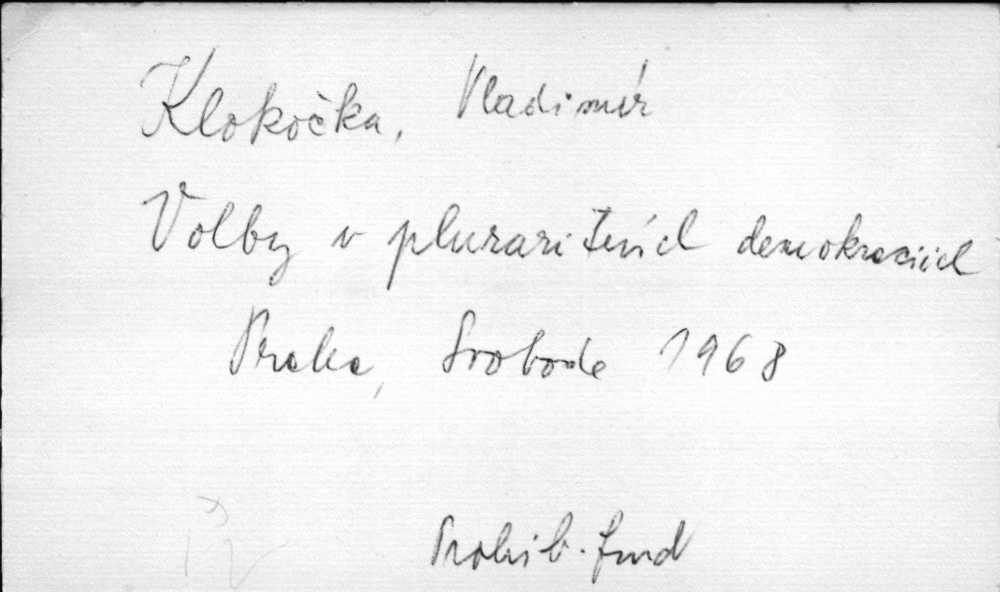 Klokočka, Vladimír
Volby v pluraritních demokraciích
Praha, Svoboda 1968
Prohib. fond